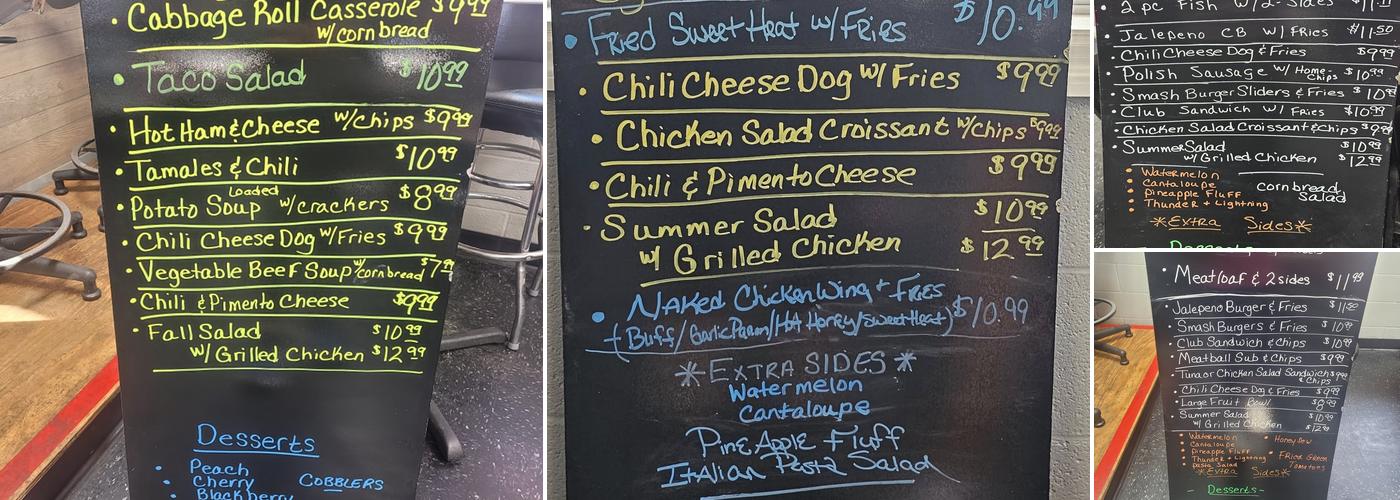 • Cabbage Roll Casserole $9.99
w/ corn bread
• Taco Salad $10.99
• Hot Ham & Cheese w/Chips $9.99
• Tamales & Chili $10.99
• Loaded Potato Soup w/crackers $8.99
• Chili Cheese Dog w/Fries $9.99
• Vegetable Beef Soup w/ cornbread $7.99
• Chili & Pimento Cheese $9.99
• Fall Salad $10.99
w/ Grilled Chicken $12.99
Desserts
• Peach
• Cherry COBBLERS
• Blackberry
• Fried Sweet Heat w/ Fries $10.99
• Chili Cheese Dog w/ Fries $9.99
• Chicken Salad Croissant w/chips $9.99
• Chili & Pimento Cheese $9.99
• Summer Salad $10.99
w/ Grilled Chicken $12.99
• NAKed Chicken Wing + FRIES $10.99
(Buff/Garlic Parm/Hot Honey/Sweet Heat)
*EXTRA SIDES*
Watermelon
Cantaloupe
PineApple Fluff
ITAlian Pasta Salad
• 2 pc Fish w/ 2-Sides
• Jalepeno CB w/ Fries $11.50
• Chili Cheese Dog & Fries $9.99
• Polish Sausage w/ Home Chips $10.99
• Smash Burger Sliders & Fries $10.99
• Club Sandwich w/ Fries $10.99
• Chicken Salad Croissant & chips $9.99
• Summer Salad $10.99
w/ Grilled Chicken $12.99
• Watermelon
• Cantaloupe
• Pineapple Fluff
• Thunder + Lightning
cornbread salad
*Extra Sides*
Desserts
• Meatloaf & 2 sides $11.99
Jalepeno Burger & Fries $11.50
• Smash Burgers & Fries $10.99
• Club Sandwich & Chips $10.99
• Meatball Sub & Chips $9.99
• Tuna or Chicken Salad Sandwich & Chips $9.99
• Chili Cheese Dog & Fries $9.99
• Large Fruit Bowl $8.99
• Summer Salad $10.99
w/ Grilled Chicken $12.99
• Watermelon • Honeydew
• Cantaloupe
• Pineapple Fluff • Fried Green Tomatoes
• Thunder + Lightning
• Pasta Salad
*Extra Sides*
- Desserts -